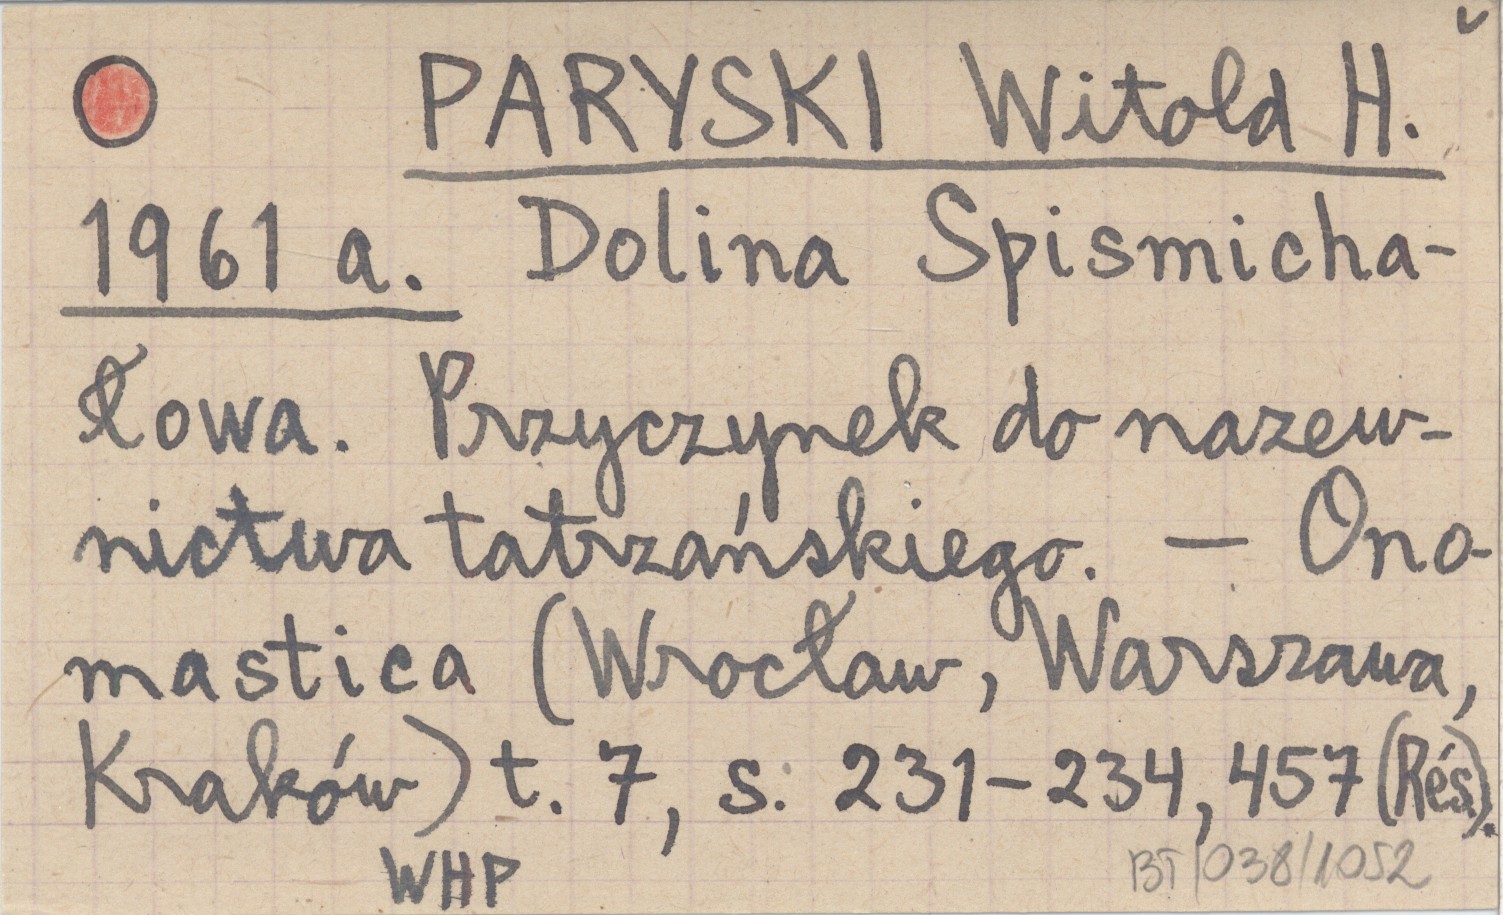 PARYSKI Witold H.
1961 a. Dolina Spismicha-
łowa. Przyczynek do nazew-
nictwa tatrzańskiego. — Ono-
mastica (Wrocław, Warszawa,
Kraków) t. 7, s. 231-234, 457 (Rés.).
WHP BT/038/1052